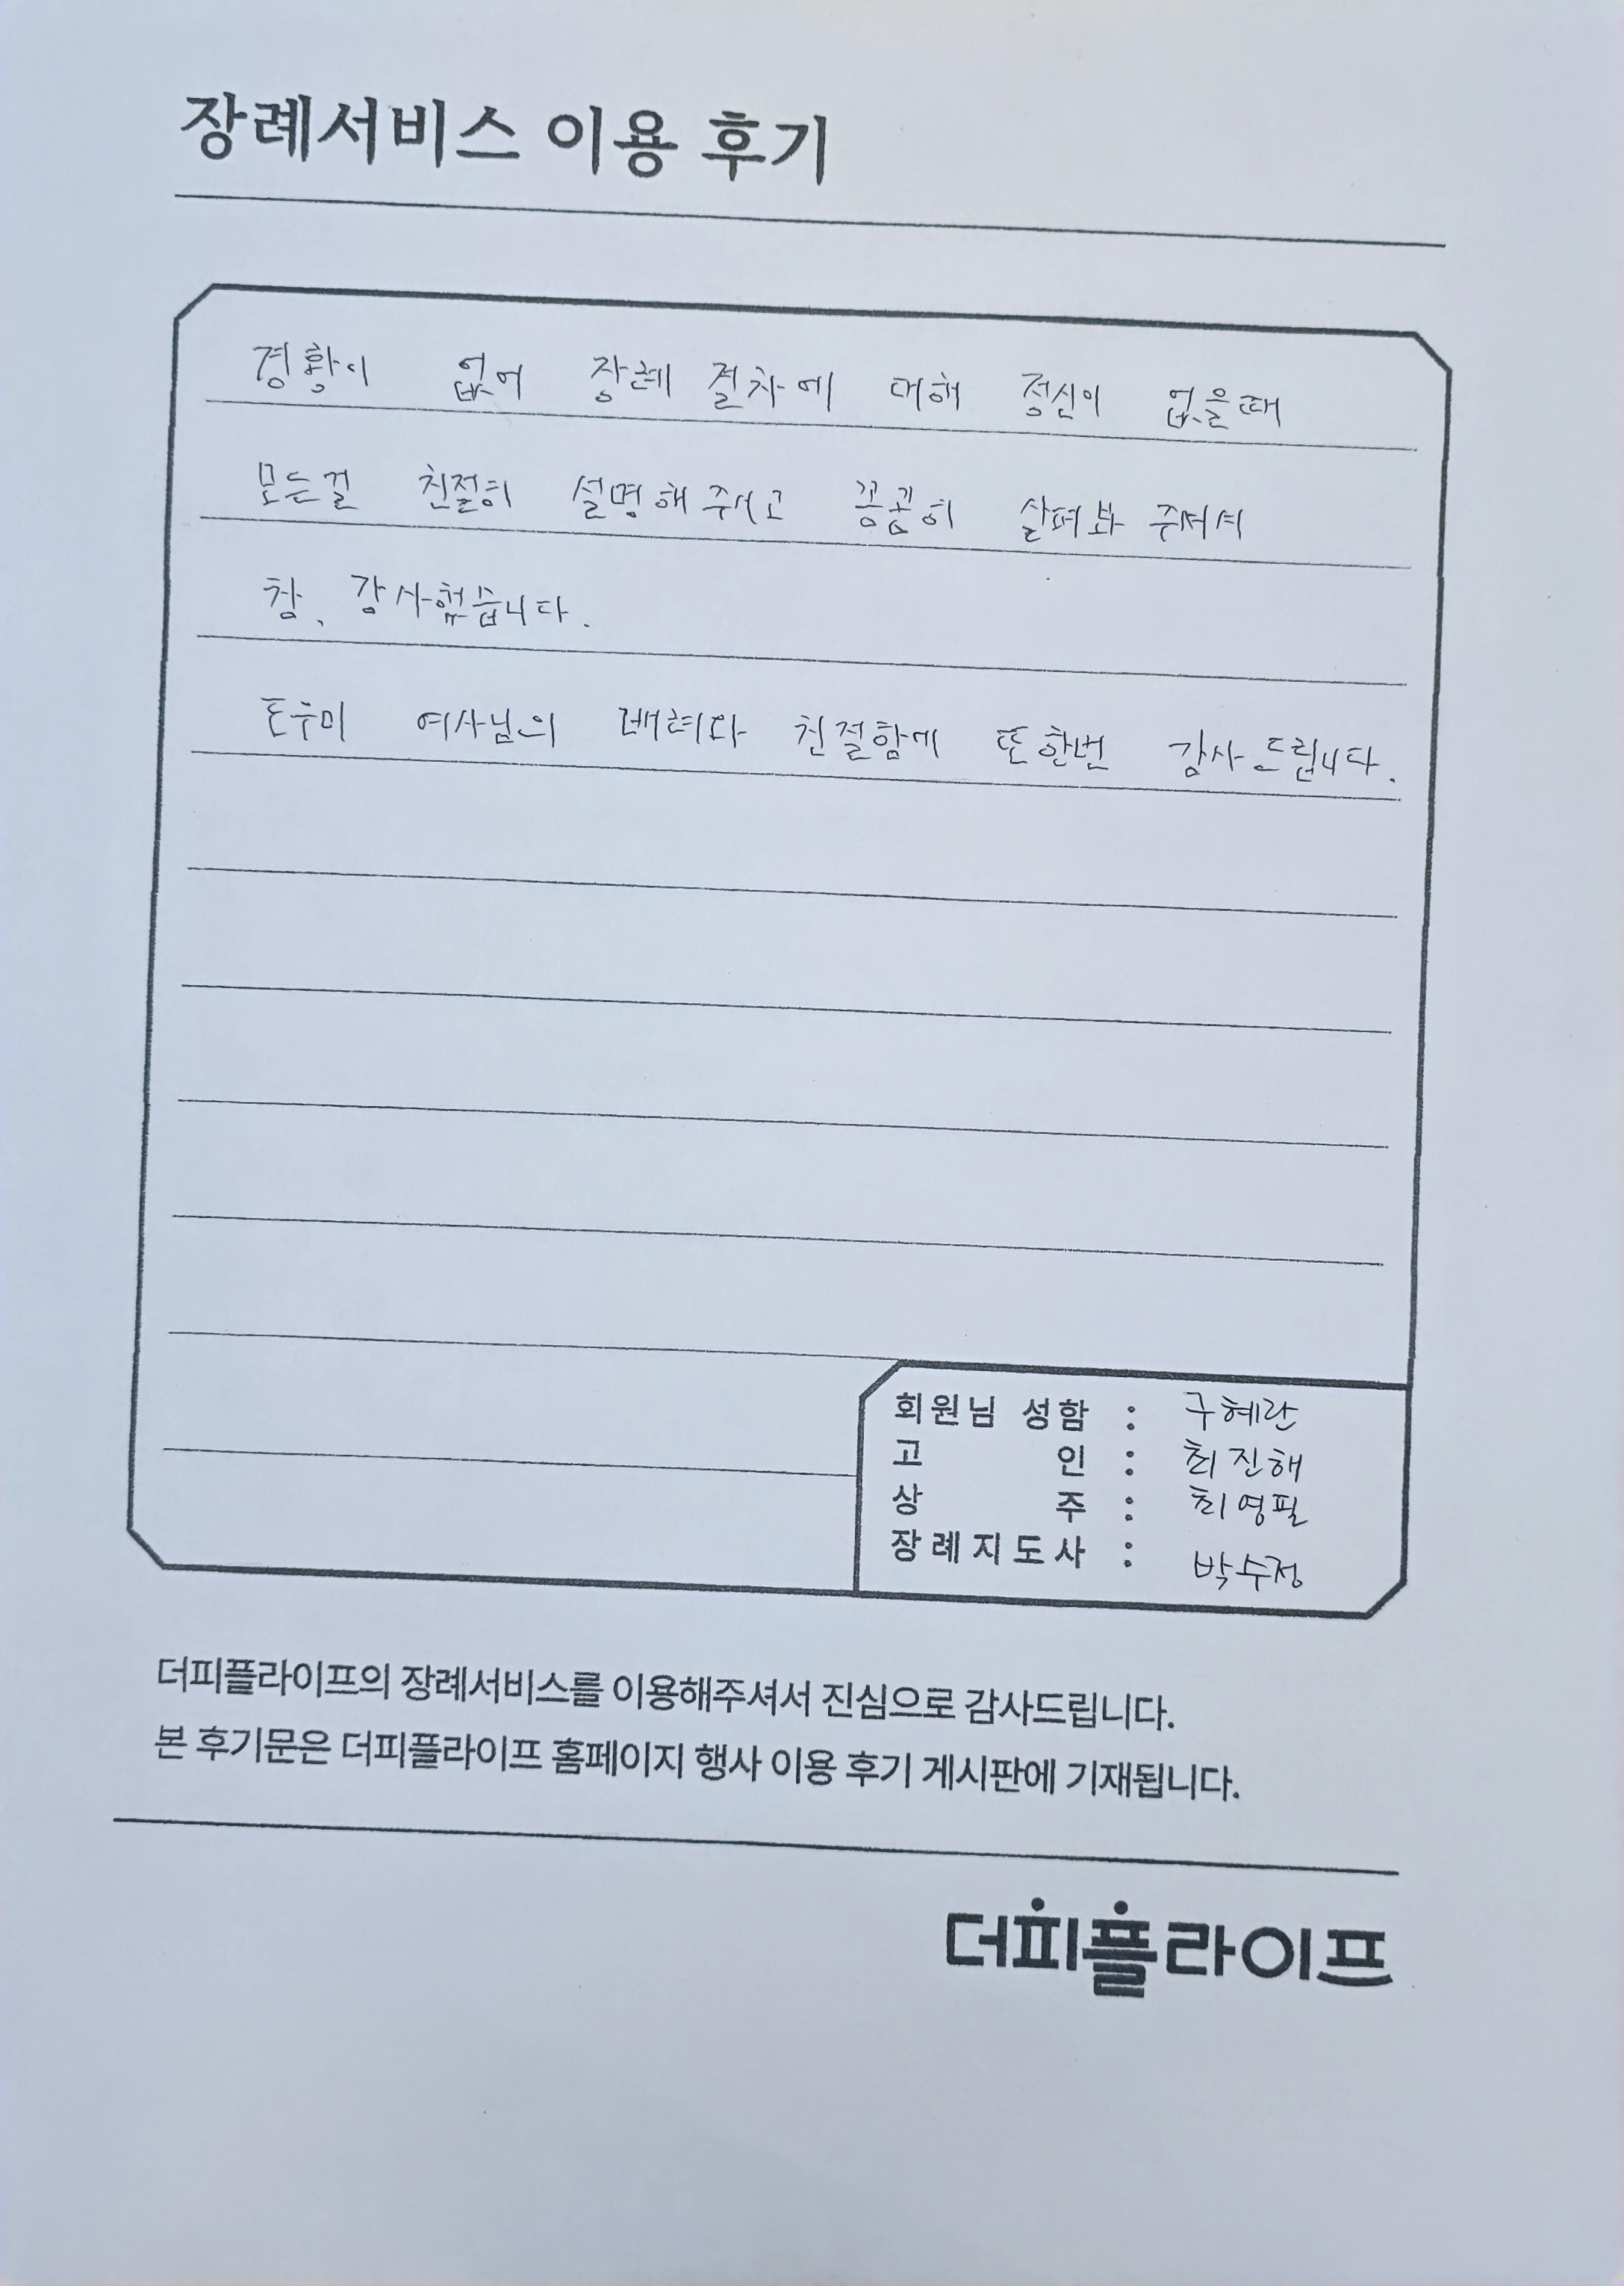 장례서비스 이용 후기
경황이 없어 장례 절차에 대해 정신이 없을때
모든걸 친절히 설명해 주시고 꼼꼼히 살펴봐 주셔서
참, 감사했습니다.
도우미 여사님의 배려와 친절함에 또한번 감사드립니다.
회원님 성함 : 구혜란
고 인 : 최진해
상 주 : 최영필
장례지도사 : 박수정
더피플라이프의 장례서비스를 이용해주셔서 진심으로 감사드립니다.
본 후기문은 더피플라이프 홈페이지 행사 이용 후기 게시판에 기재됩니다.
더피플라이프